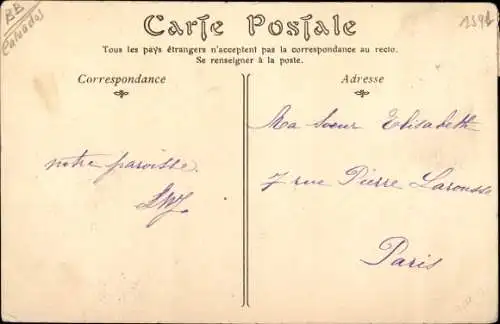 BB
Calvados
Carte Postale
Tous les pays étrangers n'acceptent pas la correspondance au recto.
Se renseigner à la poste.
Correspondance
Adresse
notre paroisse.
Ma Sœur Elisabeth
7 rue Pierre Larousse
Paris